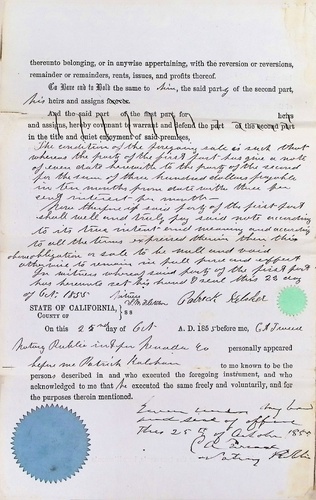 thereunto belonging, or in anywise appertaining, with the reversion or reversions,
remainder or remainders, rents, issues, and profits thereof.
To Have and to Hold the same to him, the said party of the second part,
his heirs and assigns forever.
And the said part of the first part for heirs
and assigns, hereby covenant to warrant and defend the part of the second part
in the title and quiet enjoyment of said premises,
The condition of the foregoing sale is such that
whereas the party of the first part has give a note
of even date herewith to the party of the second
for the sum of three hundred dollars payable
in ten months from date with three per
cent interest per month
Now therefore if said party of the first part
shall well and truly pay said note according
to its true intent and meaning and according
to all the terms expressed therein then this
obligation or sale to be null and void
otherwise to remain in full force and effect
In witness whereof said party of the first part
has hereunto set his hand & seal this 25 day
of Oct. 1855
Witness
Patrick Kelcher
STATE OF CALIFORNIA,
COUNTY OF
ss
On this 25nd day of Oct A. D. 1855 before me, C A Tweed
Notary Public in & for Nevada Co personally appeared
before me Patrick Kalchair
to me known to be the
persons described in and who executed the foregoing instrument, and who
acknowledged to me that he executed the same freely and voluntarily, and for
the purposes therein mentioned.
Given under my hand
and seal of office
This 25th of October 1855
C A Tweed
Notary Public